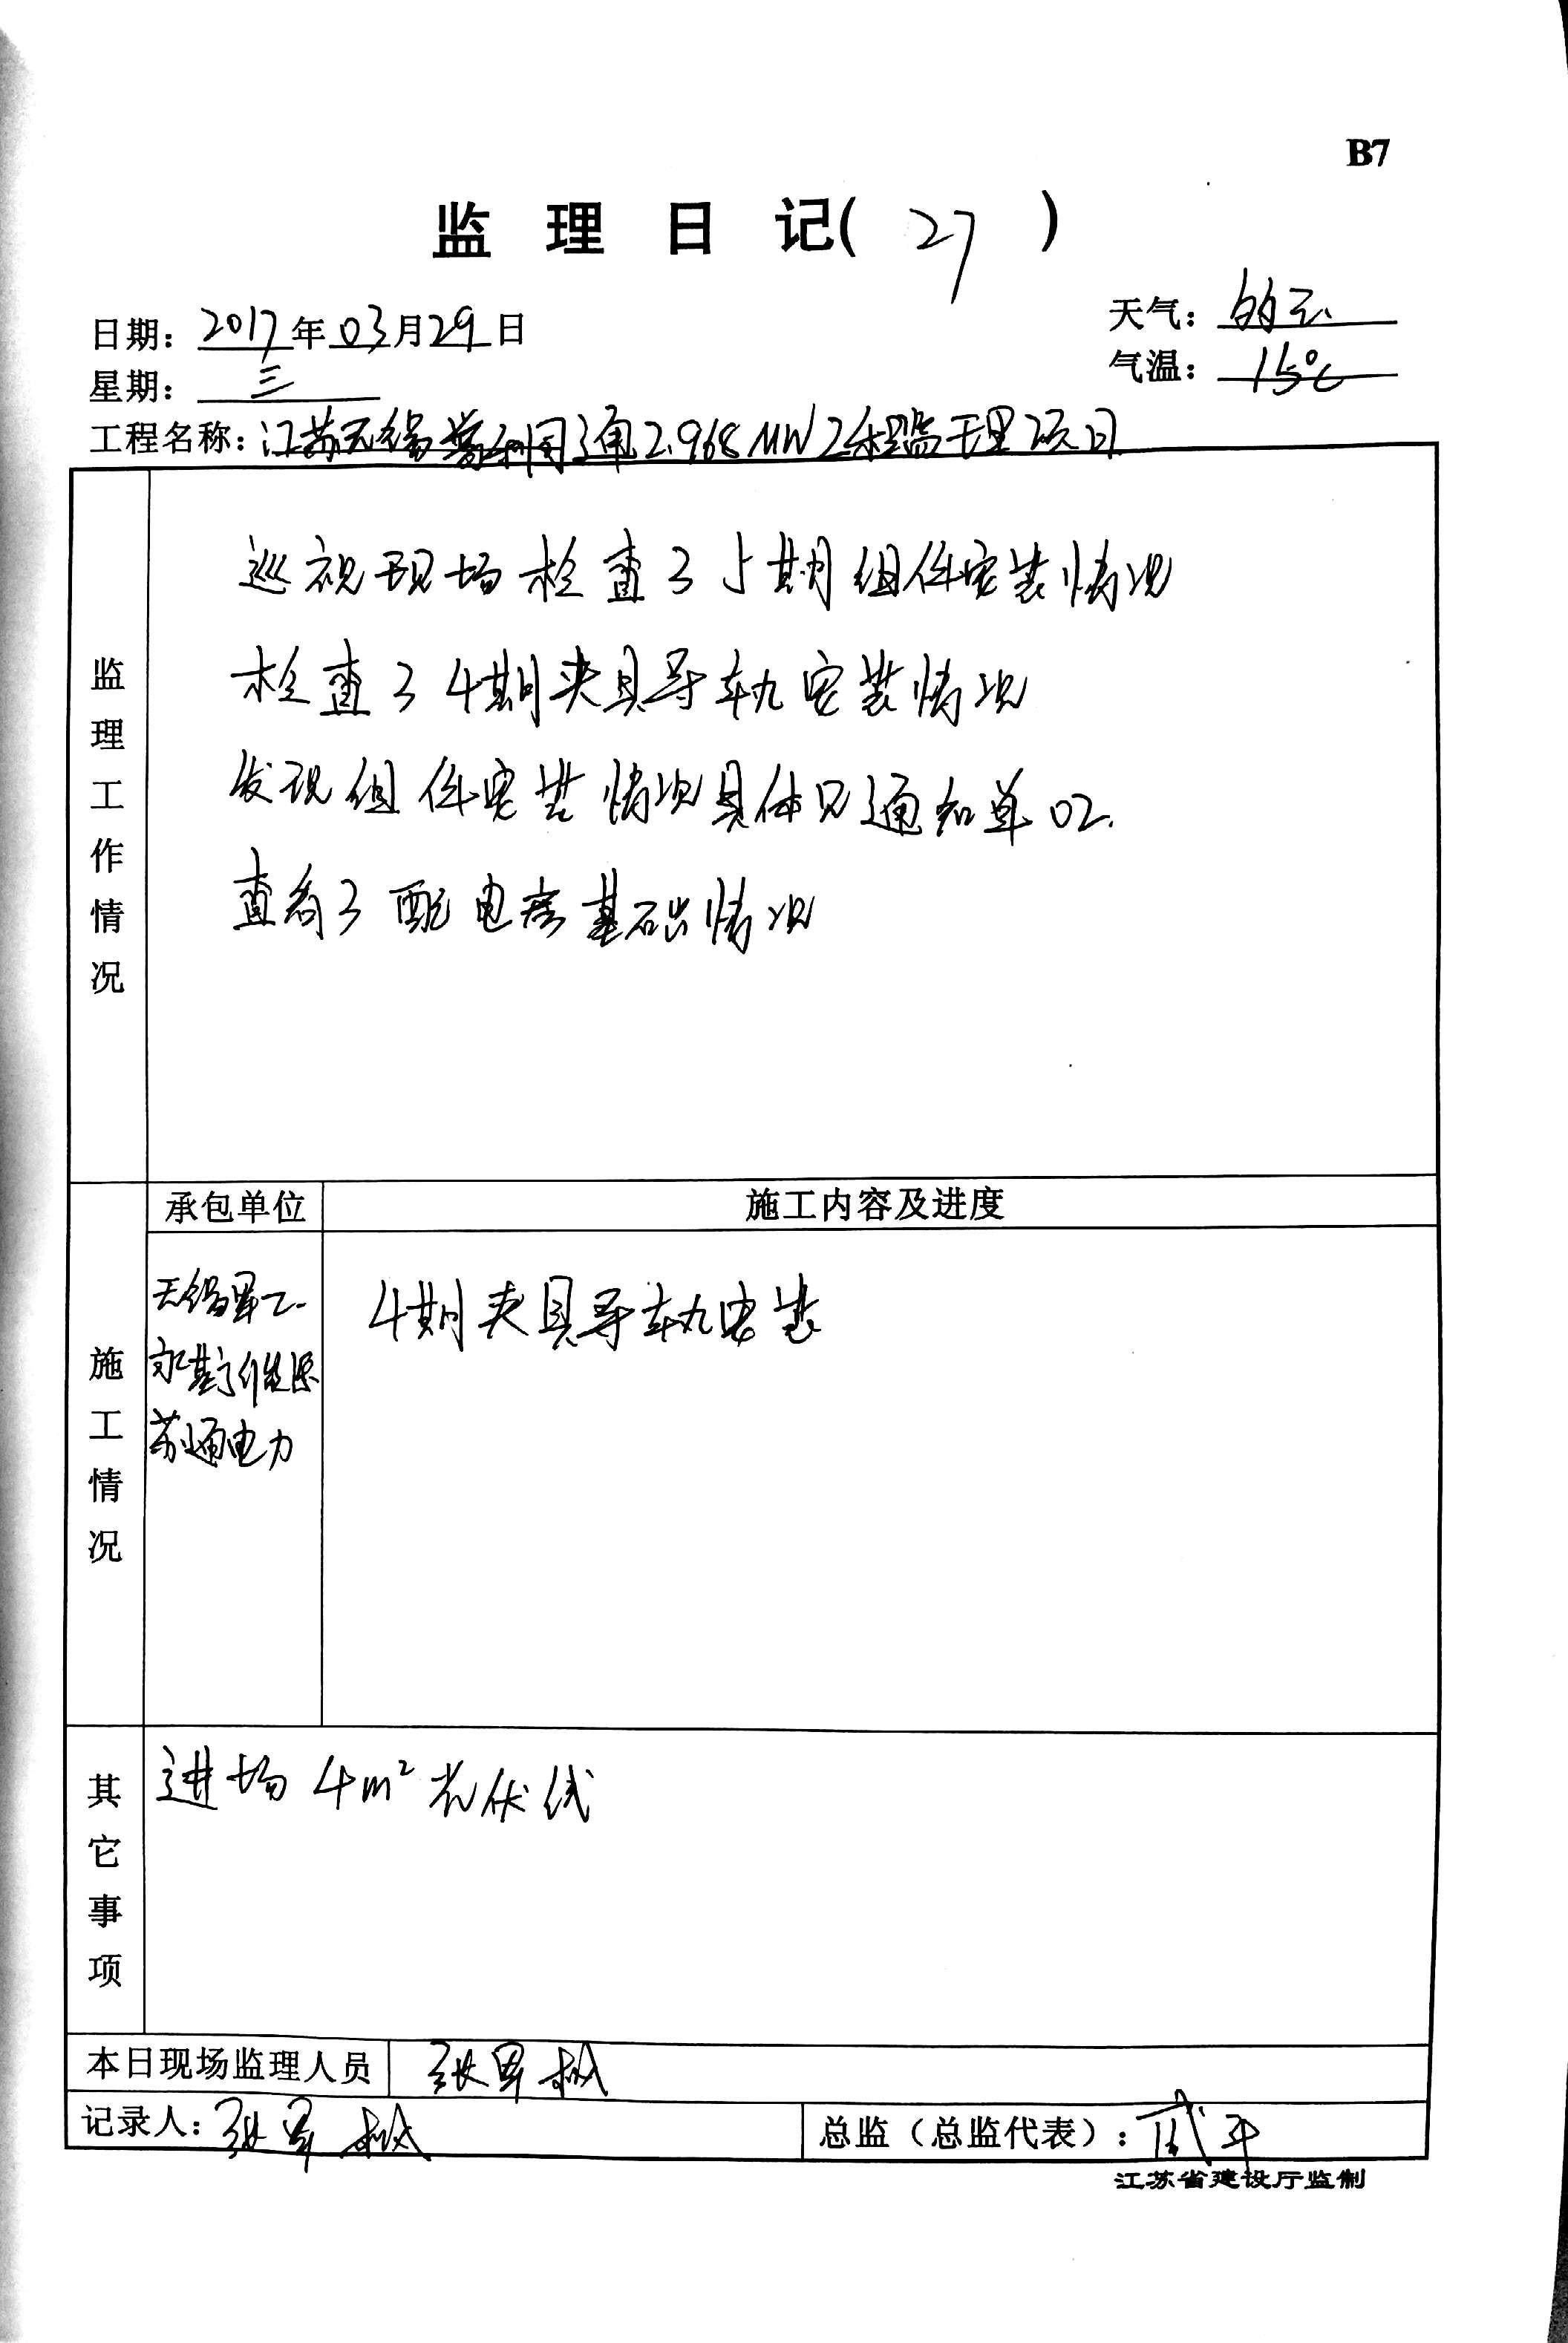 B7
监理日记(27)
日期：2017年03月29日
天气：多云
星期：三
气温：15℃
工程名称：江苏无锡普利司通2.968MW工程监理项目
监理工作情况
巡视现场检查了5期组件安装情况
检查了4期夹具导轨安装情况
发现组件安装情况具体见通知单02.
查看了配电房基础情况
施工情况
承包单位
施工内容及进度
无锡军工
4期夹具导轨安装
苏通电力
其它事项
进场4m² 光伏线
本日现场监理人员
张军
记录人：张军
总监（总监代表）：武平
江苏省建设厅监制